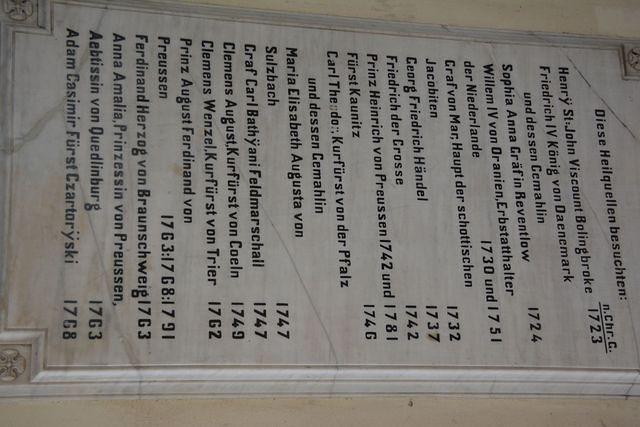 Diese Heilquellen besuchten:
n.Chr.G.
Henrÿ St: John Viscount Bolingbroke 1723
Friedrich IV König von Daenemark
und dessen Gemahlin
Sophia Anna Gräfin Reventlow 1724
Willem IV von Oranien, Erbstatthalter
der Niederlande 1730 und 1751
Graf von Mar, Haupt der schottischen
Jacobiten 1732
Georg Friedrich Händel 1737
Friedrich der Grosse 1742
Prinz Heinrich von Preussen 1742 und 1781
Fürst Kaunitz 1746
Carl Theodor, Kurfürst von der Pfalz
und dessen Gemahlin
Maria Elisabeth Augusta von
Sulzbach 1747
Graf Carl Bathÿani Feldmarschall 1747
Clemens August, Kurfürst von Coeln 1749
Clemens Wenzel, Kurfürst von Trier 1762
Prinz August Ferdinand von
Preussen 1763:1768:1791
Ferdinand Herzog von Braunschweig 1763
Anna Amalia, Prinzessin von Preussen,
Aebtissin von Quedlinburg 1763
Adam Casimir Fürst Czartorÿski 1768